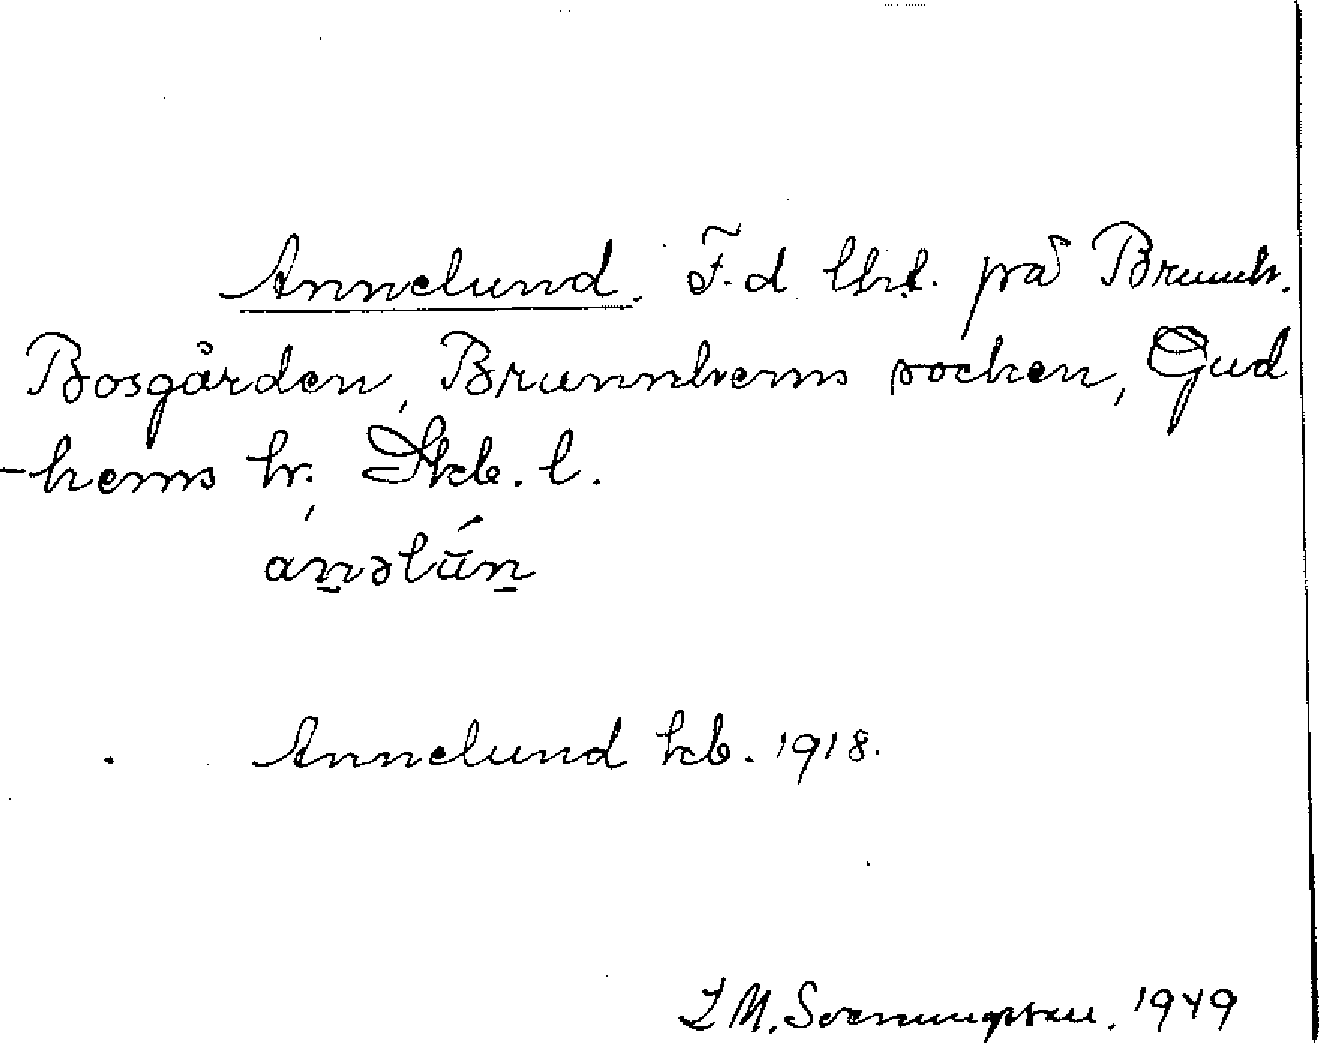 Annelund. F.d. lht. på Brunnh.
Bosgården, Brunnhems socken, Gud
-hems hr. Skb. l.
ánəlūń
Annelund kb. 1918.
1949